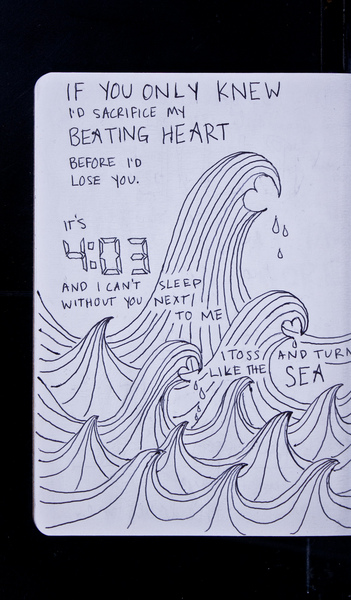 IF YOU ONLY KNEW
I'D SACRIFICE MY
BEATING HEART
BEFORE I'D
LOSE YOU.
IT'S
4:03
AND I CAN'T SLEEP
WITHOUT YOU NEXT
TO ME
I TOSS AND TURN
LIKE THE SEA